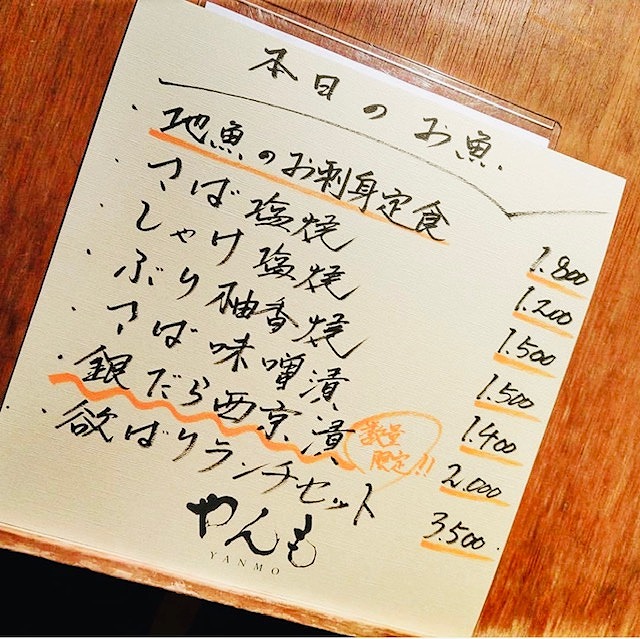 本日のお魚.
・地魚のお刺身定食 1.800
・さば塩焼 1.200
・しゃけ塩焼 1.500
・ぶり柚香焼 1.500
・さば味噌漬 1.400
・銀だら西京漬 数量限定!! 2.000
・欲ばりランチセット 3.500.
やんも
YANMO